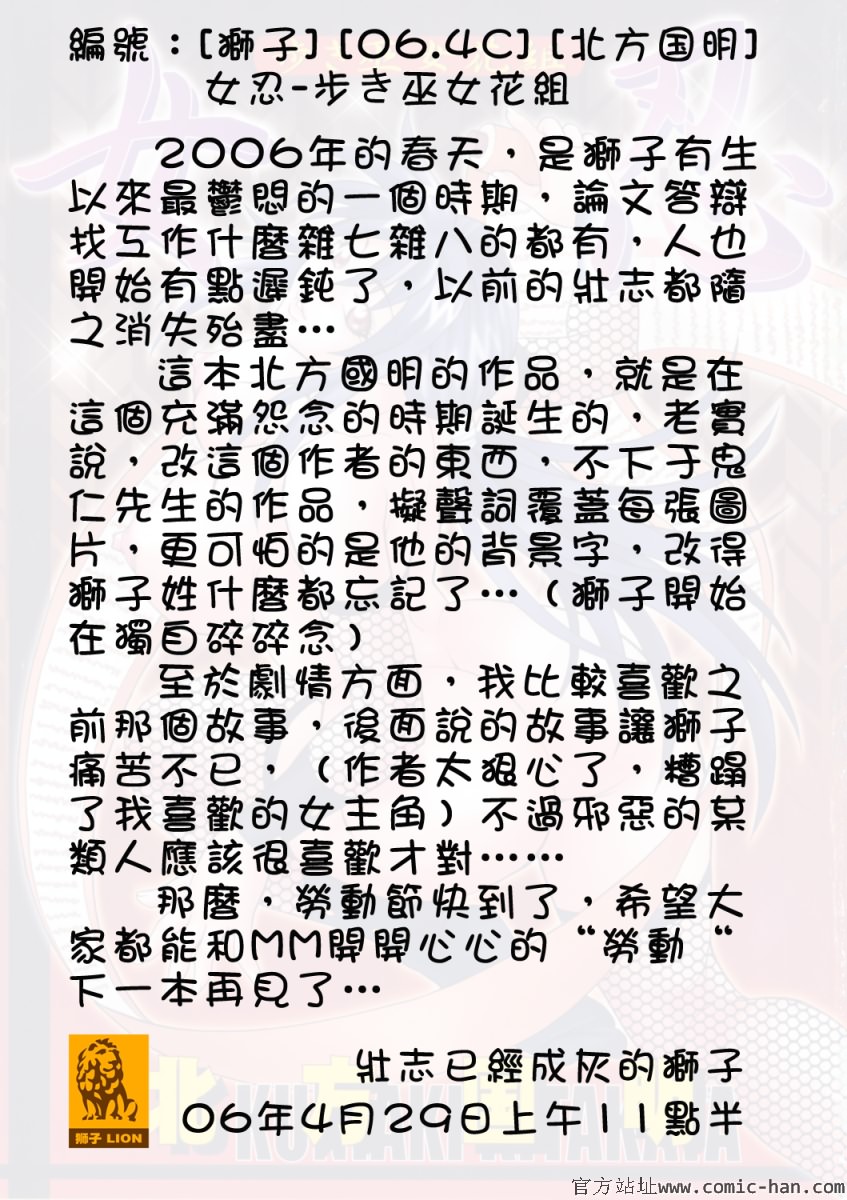 編號：[獅子] [06.4C] [北方国明]
女忍-步き巫女花組
2006年的春天，是獅子有生
以來最鬱悶的一個時期，論文答辯
找工作什麼雜七雜八的都有，人也
開始有點遲鈍了，以前的壯志都隨
之消失殆盡…
這本北方國明的作品，就是在
這個充滿怨念的時期誕生的，老實
說，改這個作者的東西，不下于鬼
仁先生的作品，擬聲詞覆蓋每張圖
片，更可怕的是他的背景字，改得
獅子姓什麼都忘記了…（獅子開始
在獨自碎碎念）
至於劇情方面，我比較喜歡之
前那個故事，後面說的故事讓獅子
痛苦不已，（作者太狠心了，糟蹋
了我喜歡的女主角）不過邪惡的某
類人應該很喜歡才對……
那麼，勞動節快到了，希望大
家都能和MM開開心心的“勞動“
下一本再見了…
壯志已經成灰的獅子
06年4月29日上午11點半
狮子 LION
北方国明
官方站址www.comic-han.com